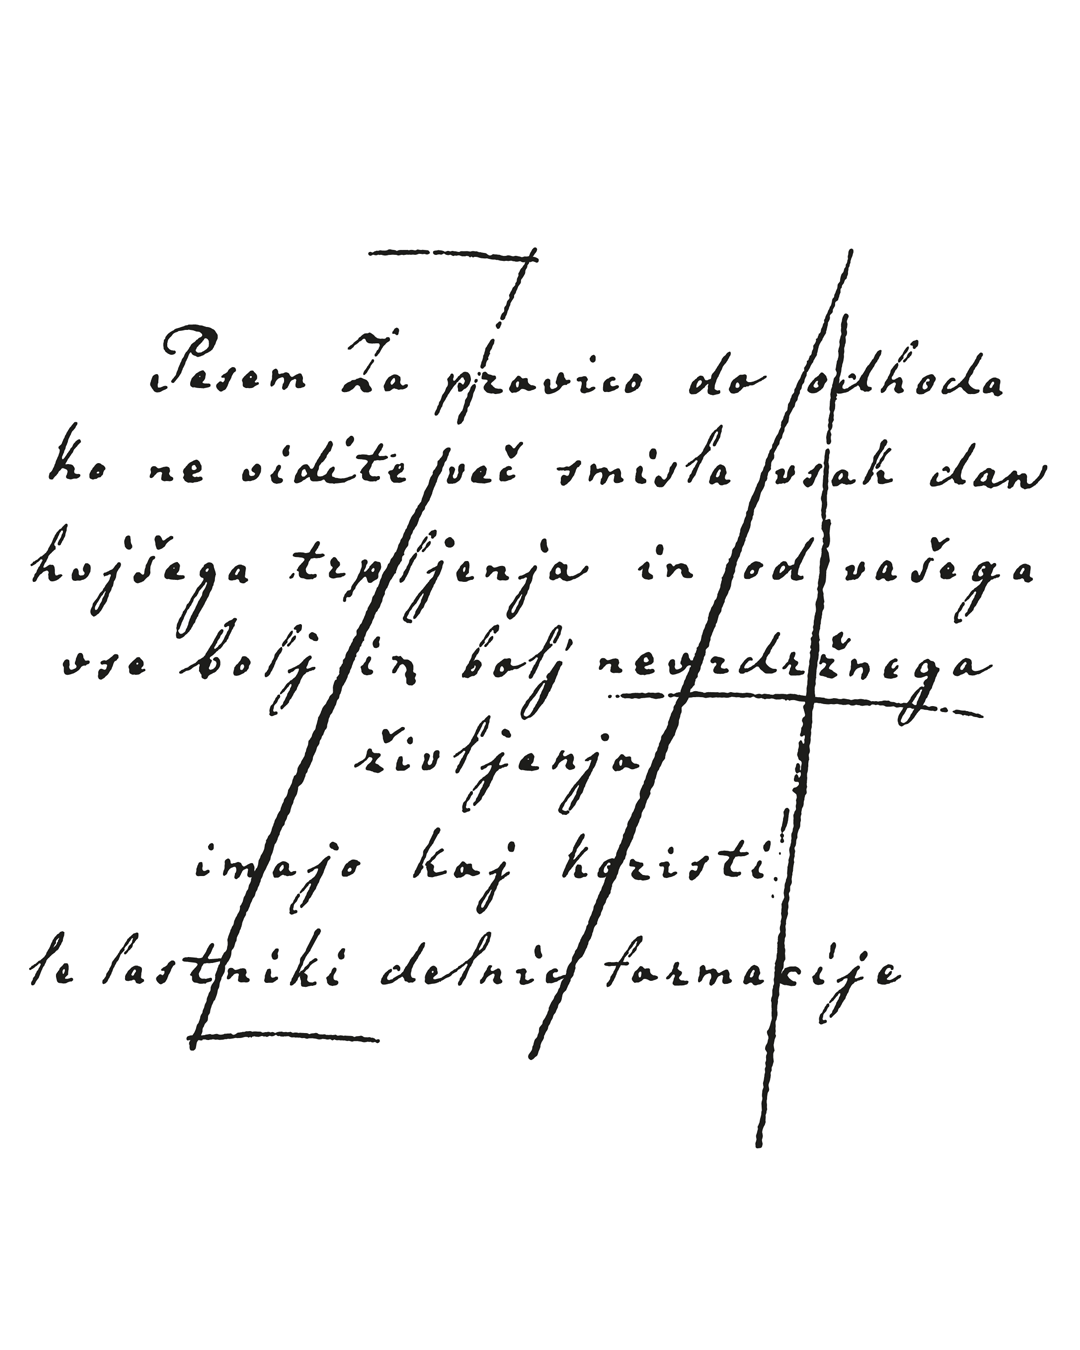 Pesem Za pravico do odhoda
ko ne vidite več smisla vsak dan
hujšega trpljenja in od vašega
vse bolj in bolj nevzdržnega
življenja
imajo kaj koristi
le lastniki delnic farmacije
ZA